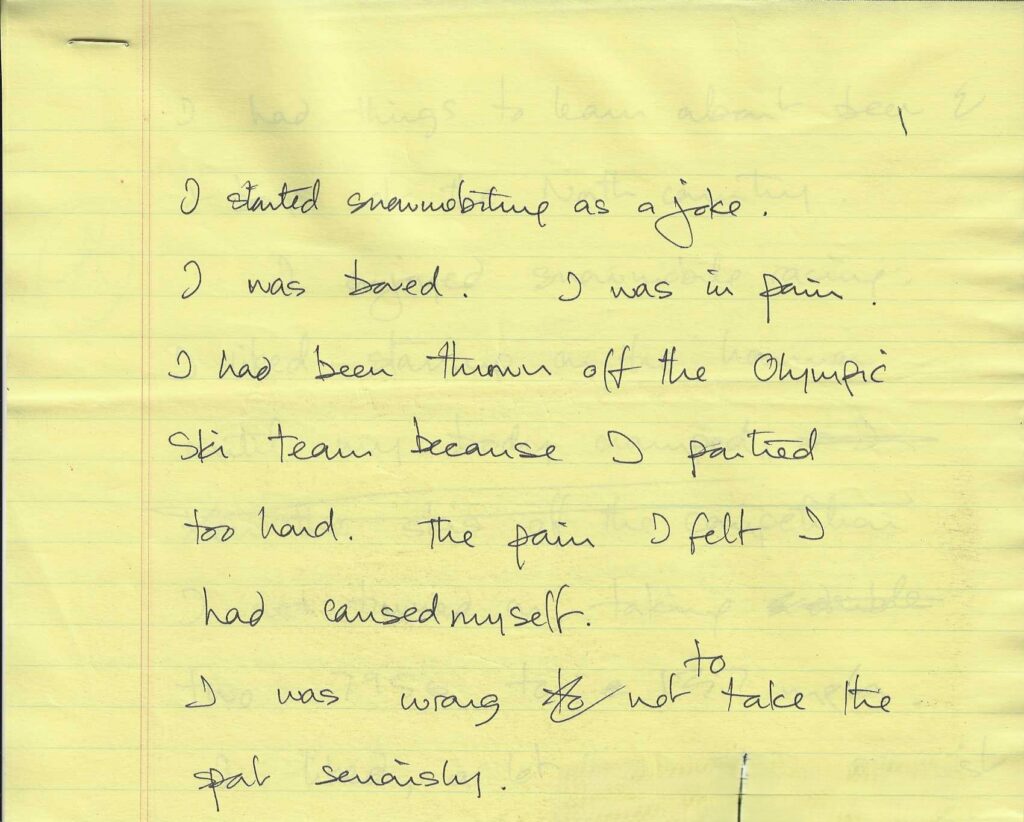 1
I started snowmobiling as a joke.
I was bored. I was in pain.
I had been thrown off the Olympic
ski team because I partied
too hard. The pain I felt I
had caused myself.
to
I was wrong to not take the
sport seriously.